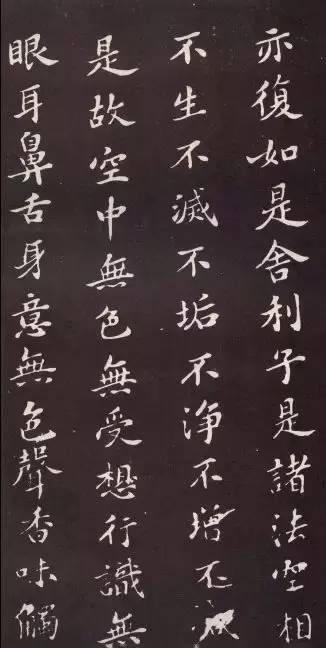 亦復如是舍利子是諸法空相
不生不滅不垢不淨不增不減
是故空中無色無受想行識無
眼耳鼻舌身意無色聲香味觸